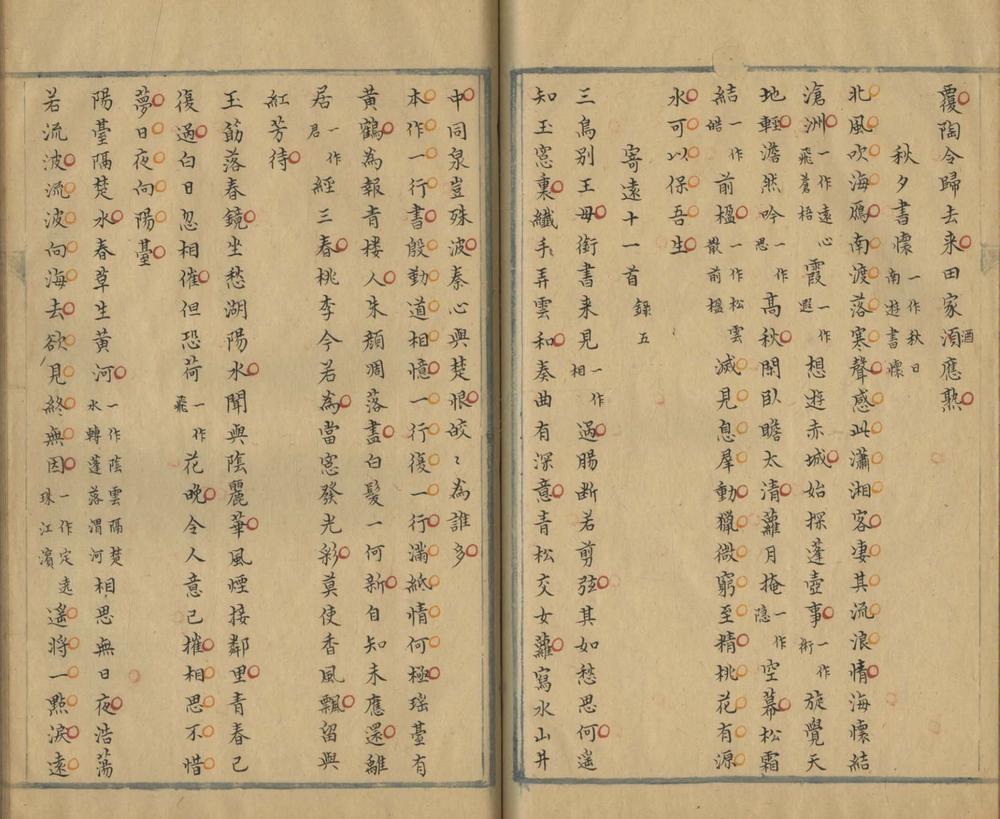 覆陶令歸去来田家酒應熟
秋夕書懷一作秋日南遊書懷
北風吹海鴈南渡落寒聲感此瀟湘客凄其流浪情海懷結
滄洲一作遠心飛蒼梧霞一作遐想遊赤城始探蓬壺事一作術旋覺天
地輕澹然吟一作思高秋閒臥瞻太清蘿月掩一作隱空幕松霜
結一作皓前楹一作松雲散前楹滅見息羣動獵微窮至精桃花有源
水可以保吾生
寄遠十一首 錄五
三鳥别王母銜書来見一作相過腸斷若剪弦其如愁思何遥
知玉窓裏纖手弄雲和奏曲有深意青松交女蘿寫水山井
中同泉豈殊波秦心與楚恨皎〻為誰多
本作一行書殷勤道相憶一行復一行滿紙情何極瑶臺有
黄鶴為報青樓人朱顏凋落盡白髮一何新自知未應還離
居一作君經三春桃李今若為當窓發光彩莫使香風飄留與
紅芳待
玉筯落春鏡坐愁湖陽水聞與陰麗華風煙接鄰里青春已
復過白日忽相催但恐荷一作飛花晚令人意已摧相思不惜
夢日夜向陽臺
陽臺隔楚水春草生黄河一作陰雲隔楚水轉蓬落渭河相思無日夜浩蕩
若流波流波向海去欲見終無因一作定遶珠江濱遥將一點淚遠